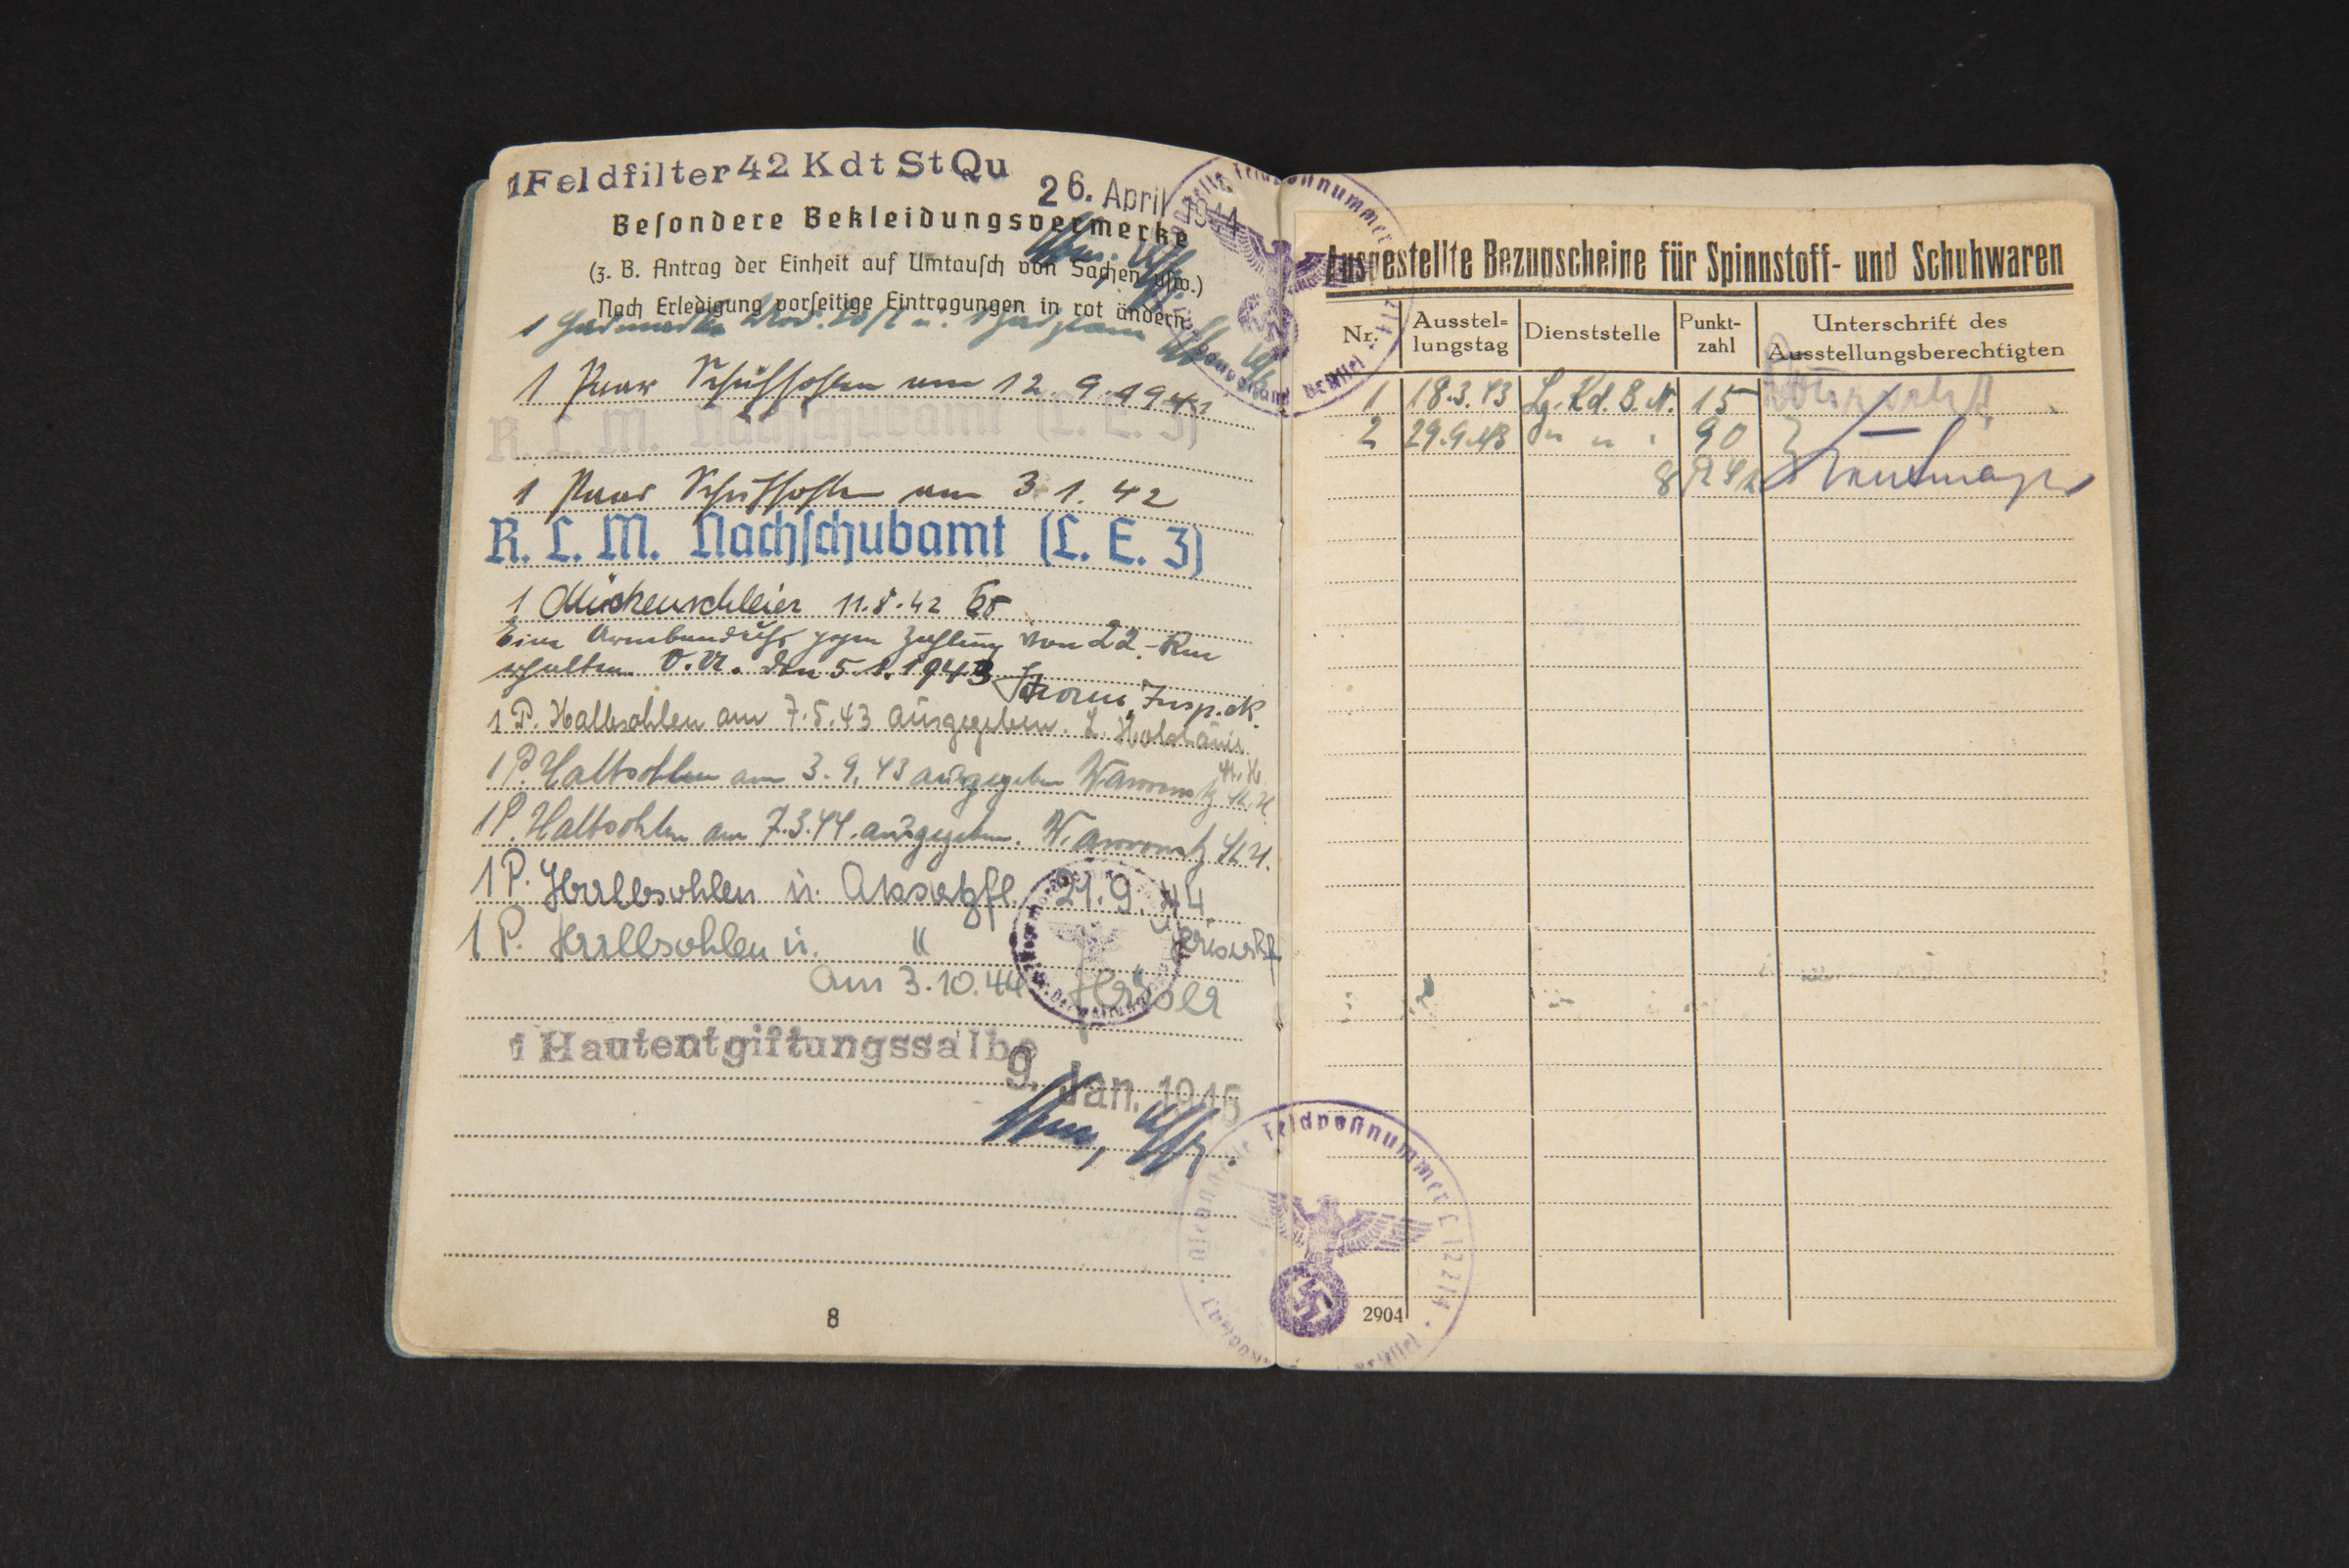 1 Feldfilter 42 Kdt St Qu
26. April 1944
Beſondere Bekleidungsvermerke
(z. B. Antrag der Einheit auf Umtauſch von Sachen uſw.)
Nach Erledigung vorſeitige Eintragungen in rot ändern.
1 Paar Schuhsohlen am 12.9.1941
R. L. M. Nachſchubamt (L. E. 3)
1 Paar Schuhsohlen am 3.1.42
R. L. M. Nachſchubamt (L. E. 3)
1 Mückenschleier 11.8.42
Eine Armbanduhr gegen Zahlung von 22.- Rm
erhalten. O.U. den 5.1.1943
1 P. Halbsohlen am 7.5.43 ausgegeben.
1 P. Halbsohlen am 3.9.43 ausgegeben
1 P. Halbsohlen am 7.3.44. ausgegeben.
1 P. Halbsohlen u. Absatzfl. 21.9.44.
1 P. Halbsohlen u. "
am 3.10.44
1 Hautentgiftungssalbe
9. Jan. 1945
8
Ausgestellte Bezugscheine für Spinnstoff- und Schuhwaren
Nr. Ausstel= lungstag Dienststelle Punkt- zahl Unterschrift des Ausstellungsberechtigten
1 18.3.43 15
2 29.9.43 " " " 90
Feldpoſtnummer
Feldpoſtnummer L 12214
2904